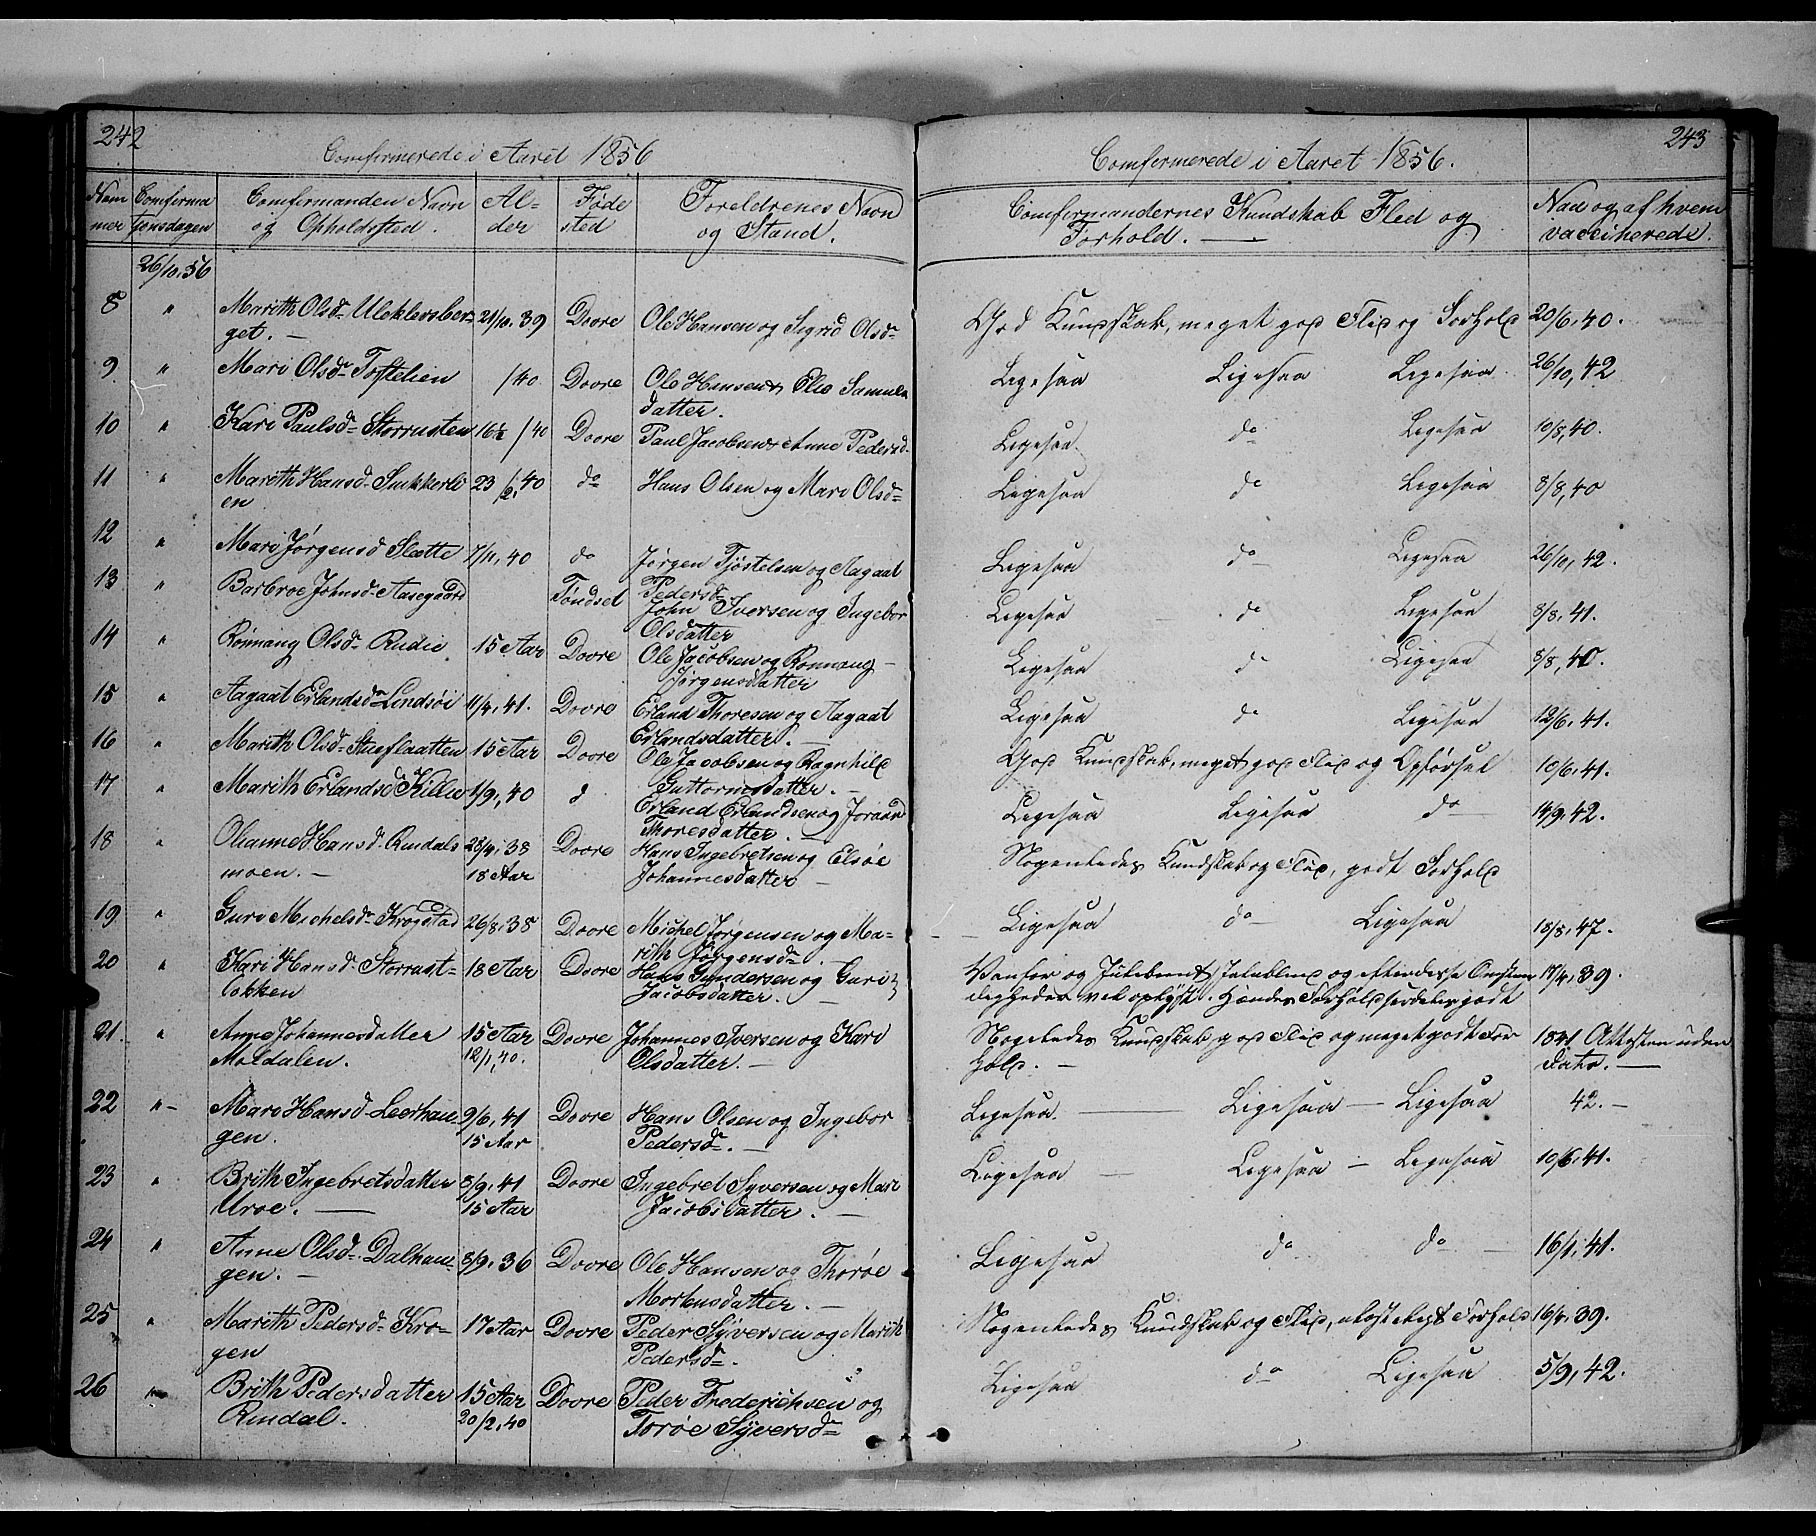 242
Comfermerede i Aaret 1856
Num Comferma Comfermanden Navn Al- Føde Foreldrenes Navn
mer tjonsdagen og Opholdsted. der sted og Stand.
26/10, 56
8 " Marith Olsd 21/10, 39 Dovre Ole Hansen og Sigrid Olsd
get. —
9 " Mari Olsd Toftelien /40 Dovre Ole Hansen Samuels
datter.
10 " Kari Paulsd Storrusten 16½ /40 Dovre Paul Jacobsen Anne Pedersd
11 " Marith Hansd 23/2, 40 do Hans Olsen og Mari Olsd
en
12 " Mari Jørgensd Slette 7/11, 40 do Jørgen Tjøstelsen og Aagaat
Pedersd
13 " Barbroe Johnsd Aasegaard Tøndset John Iversen og Ingebor
Olsdatter
14 " Rønnaug Olsd Rudie 15 Aar Dovre Ole Jacobsen og Rønnaug
Jørgensdatter
15 " Aagaat Erlandsd Lindsøi 11/4, 41. Dovre Erland Thoresen og Aagaat
Erlandsdatter. —
16 " Marith Olsd Stueflaatten 15 Aar Dovre Ole Jacobsen og Ragnhild
Guttormsdatter. —
17 " Marith Erlandsd Killie 1/9, 40 d Erland Erlandsen og Joraand
Thoresdatter. —
18 " Olianne Hansd Rindals 28/4, 38 Dovre Hans Ingebretsen og Elsøe
moen. — 18 Aar Johannesdatter —
19 " Guri Michelsd Krogstad 26/8, 38 Dovre Michel Jørgensen og Ma-
rith Jørgensd
20 " Kari Hansd Storrust- 18 Aar Dovre Hans Gundersen og Guri
løkken Jacobsdatter. —
21 " Anne Johannesdatter 15 Aar Dovre Johannes Iversen og Kari
Moldalen. 12/1, 40. Olsdatter. —
22 " Mari Hansd Leerhau- 9/6, 41 Dovre Hans Olsen og Ingebor
gen. 15 Aar Pedersd. —
23 " Brith Ingebretsdatter 8/9, 41 Dovre Ingebret Syversen og Mari
Uroe. — 15 Aar Jacobsdatter. —
24 " Anne Olsd Dalhau- 8/9, 36 Dovre Ole Hansen og Thorøe
gen. — Mortensdatter. —
25 " Marith Pedersd Kro- 17 Aar Dovre Peder Syversen og Marith
gen Pedersd.
26 " Brith Pedersdatter 15 Aar Dovre Peder Frederichsen og
Rindal. 20/2, 40 Torøe Syversd
243
Comfermerede i Aaret 1856.
Comfermandernes Kundskab Flid og Nad og af hvem
Forhold. — vaccinerede.
God Kundskab, meget god Flid og Forhold 20/6, 40.
Ligesaa Ligesaa Ligesaa 26/10, 42
Ligesaa do Ligesaa 10/8, 40.
Ligesaa do Ligesaa 8/8, 40
Ligesaa do Ligesaa 26/10, 42.
Ligesaa do Ligesaa 8/8, 41.
Ligesaa do Ligesaa 8/8, 40.
Ligesaa do Ligesaa 12/6, 41.
God Kundskab, meget god Flid og Opførsel 10/6, 41.
Ligesaa Ligesaa do 14/9, 42.
Nogenledes Kundskab og Flid, godt Forhold
Ligesaa do Ligesaa 18/8, 47.
Vanfør og og efter disse Omstæn 17/4, 39.
digheder vel oplyst. Hendes Forhold særdeles godt
Nogenledes Kundskab, god Flid og meget godt For 1841 Attesten uden
hold. — Dato. —
Ligesaa. — Ligesaa — Ligesaa 42. —
Ligesaa — Ligesaa — Ligesaa 10/6, 41.
Ligesaa do do 16/1, 41.
Nogenledes Kundskab og Flid, Forhold 16/4, 39.
Ligesaa do Ligesaa 5/9, 42.